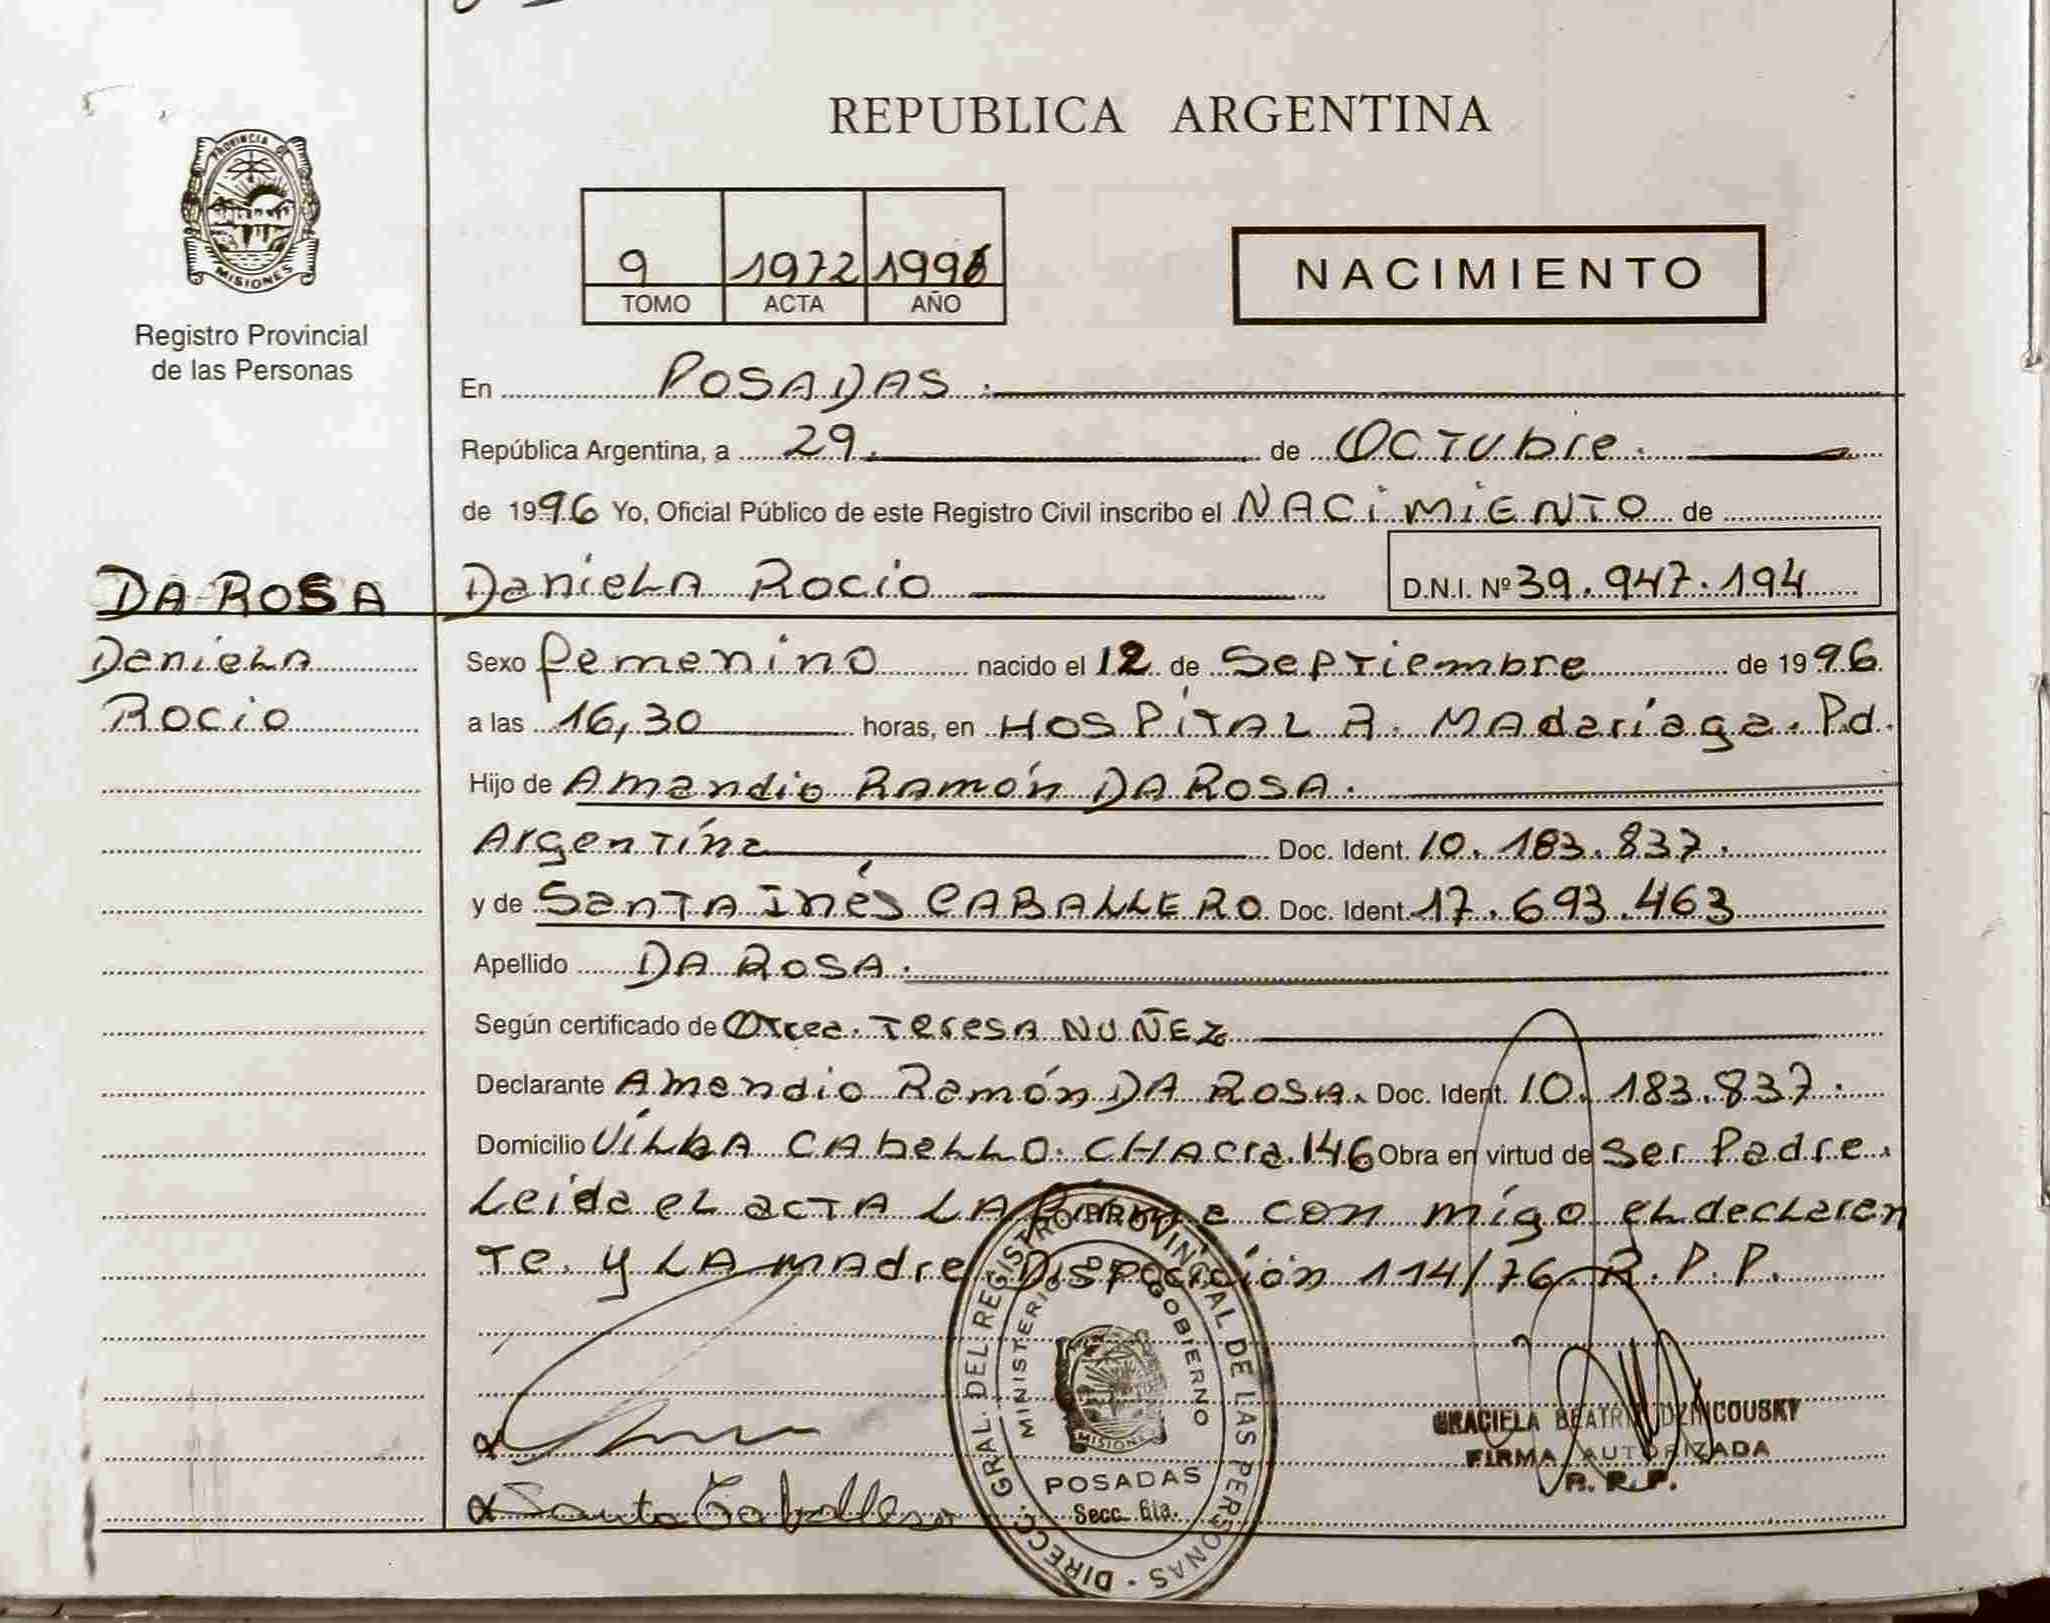 REPUBLICA ARGENTINA
PROVINCIA DE
MISIONES
Registro Provincial
de las Personas
9 1972 1996
TOMO ACTA AÑO
NACIMIENTO
En POSADAS.
República Argentina, a 29. de OCTUbre.
de 1996 Yo, Oficial Público de este Registro Civil inscribo el NACIMIENTO de
DA ROSA
DanieLA Rocio D.N.I. Nº 39.947.194
DanieLA
Rocio
Sexo femenino nacido el 12 de Septiembre de 1996.
a las 16,30 horas, en HOSPITAL R. MAdariaga. Pd.
Hijo de Amandio Ramón DA ROSA.
Argentina Doc. Ident. 10.183.837.
y de SANTA Inés CABALLERO Doc. Ident. 17.693.463
Apellido DA ROSA.
Según certificado de Teresa NUÑEZ
Declarante Amandio Ramón DA ROSA. Doc. Ident. 10.183.837.
Domicilio VILLA CAbELLO. CHAcra.146 Obra en virtud de Ser Padre.
Leida eL acTA LA firma con migo eL declaran
Te. y LA MAdre Disposición 114/76 R.P.P.
DIRECC. GRAL. DEL REGISTRO PROVINCIAL DE LAS PERSONAS
MINISTERIO DE GOBIERNO
MISIONES
POSADAS
Secc. 6ta.
GRACIELA BEATRIZ
FIRMA AUTORIZADA
R.R.P.
Santa Caballero